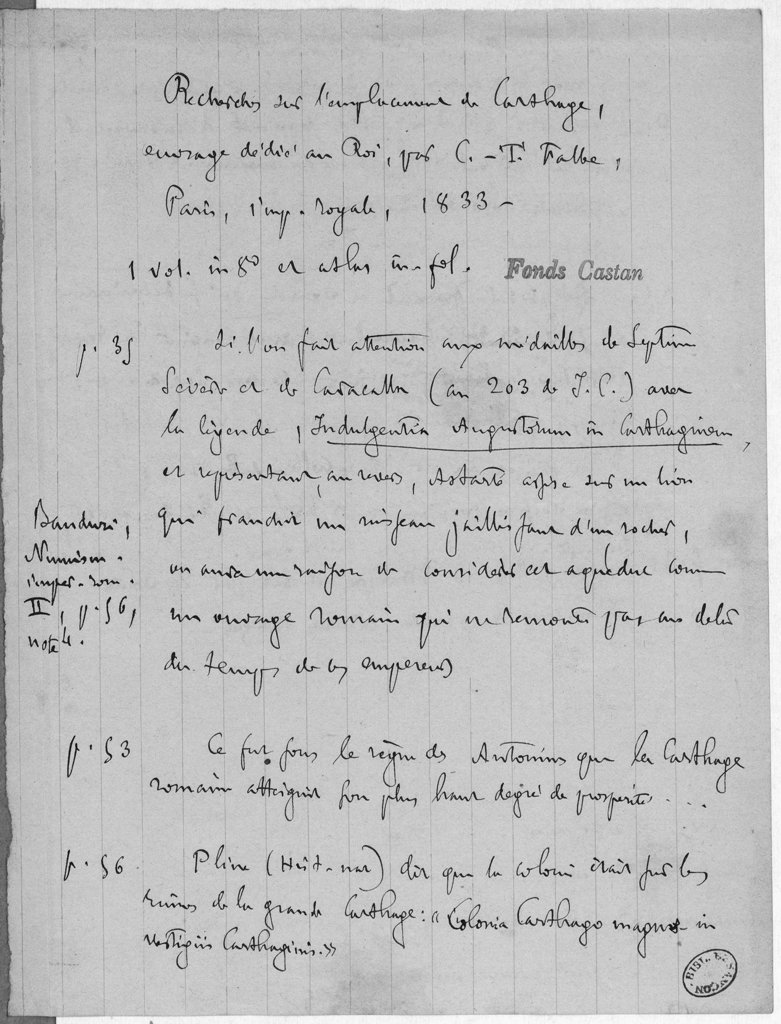 Recherches sur l'emplacement de Carthage,
ouvrage dédié au Roi, par C.-T. Falbe,
Paris, imp. royale, 1833 -
1 vol. in 8º et atlas in-fol.
Fonds Castan
p. 35
Si l'on fait attention aux médailles de Septime
Sévère et de Caracalla (an 203 de J. C.) avec
la légende, Indulgentia Augustorum in Carthaginem,
et représentant, au revers, Astarté assise sur un lion
qui franchit un ruisseau jaillissant d'un rocher,
on aura une raison de considérer cet aqueduc comme
un ouvrage romain qui ne remonte pas au delà
du temps de ces empereurs
Banduri,
Numism.
imper. rom.
II, p. 56,
note 4.
p. 53
Ce fut sous le règne des Antonins que la Carthage
romaine atteignit son plus haut degré de prospérité ....
p. 56
Pline (Hist. nat) dit que la colonie était sur les
ruines de la grande Carthage : « Colonia Carthago magnæ in
vestigiis Carthaginis. »
BIBL. BESANÇON